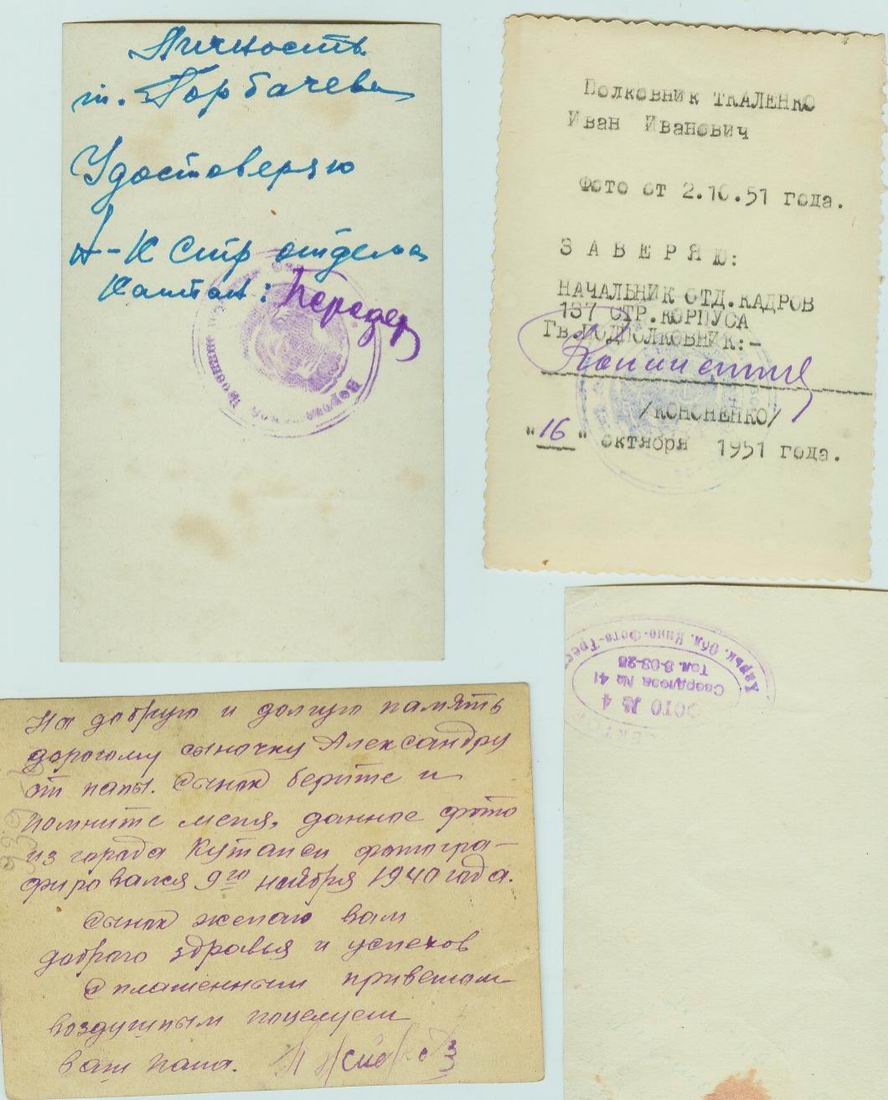 Личность
т. Горбачева
Удостоверяю
Н-К Стр отдела
Капитан:
Полковник ТКАЛЕНКО
Иван Иванович
Фото от 2.10.51 года.
ЗАВЕРЯЮ:
НАЧАЛЬНИК ОТД.КАДРОВ
137 СТР.КОРПУСА
Гв.ПОДПОЛКОВНИК:-
/КОНОНЕНКО/
"16" октября 1951 года.
На добрую и долгую память
дорогому сыночку Александру
от папы. Сынок берите и
помните меня, данное фото
из города Кутаиси фотогра-
фировался 9го ноября 1940 года.
Сынок желаю вам
доброго здравья и успехов
С пламенным приветом
воздушным поцелуем
ваш папа.
Харьк. Обл. Кино-Фото-Трест
ФОТО № 4
Свердлова № 41
Тел. 3-03-25